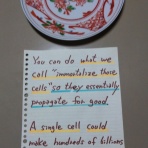 You can do what we
call "immortalize those
cells" so they essentially
propagate for good.
A single cell could
make hundreds of billions